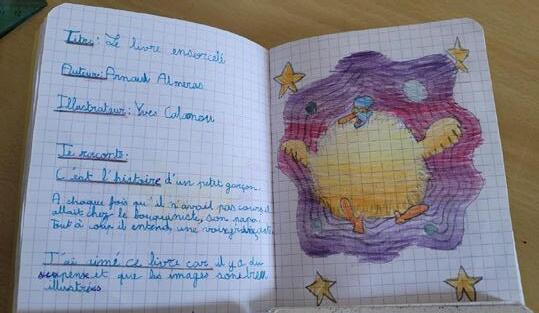 Titre: Le livre ensorcelé
Auteur: Arnaud Almeras
Illustrateur: Yves Calarnou
Je raconte:
C'est l'histoire d'un petit garçon.
A chaque fois qu'il n'avait pas cours il
allait chez le bouquiniste, son papa.
Tout à coup il entend une voix
J'ai aimé ce livre car il y a du
suspense et que les images sont bien
illustrées